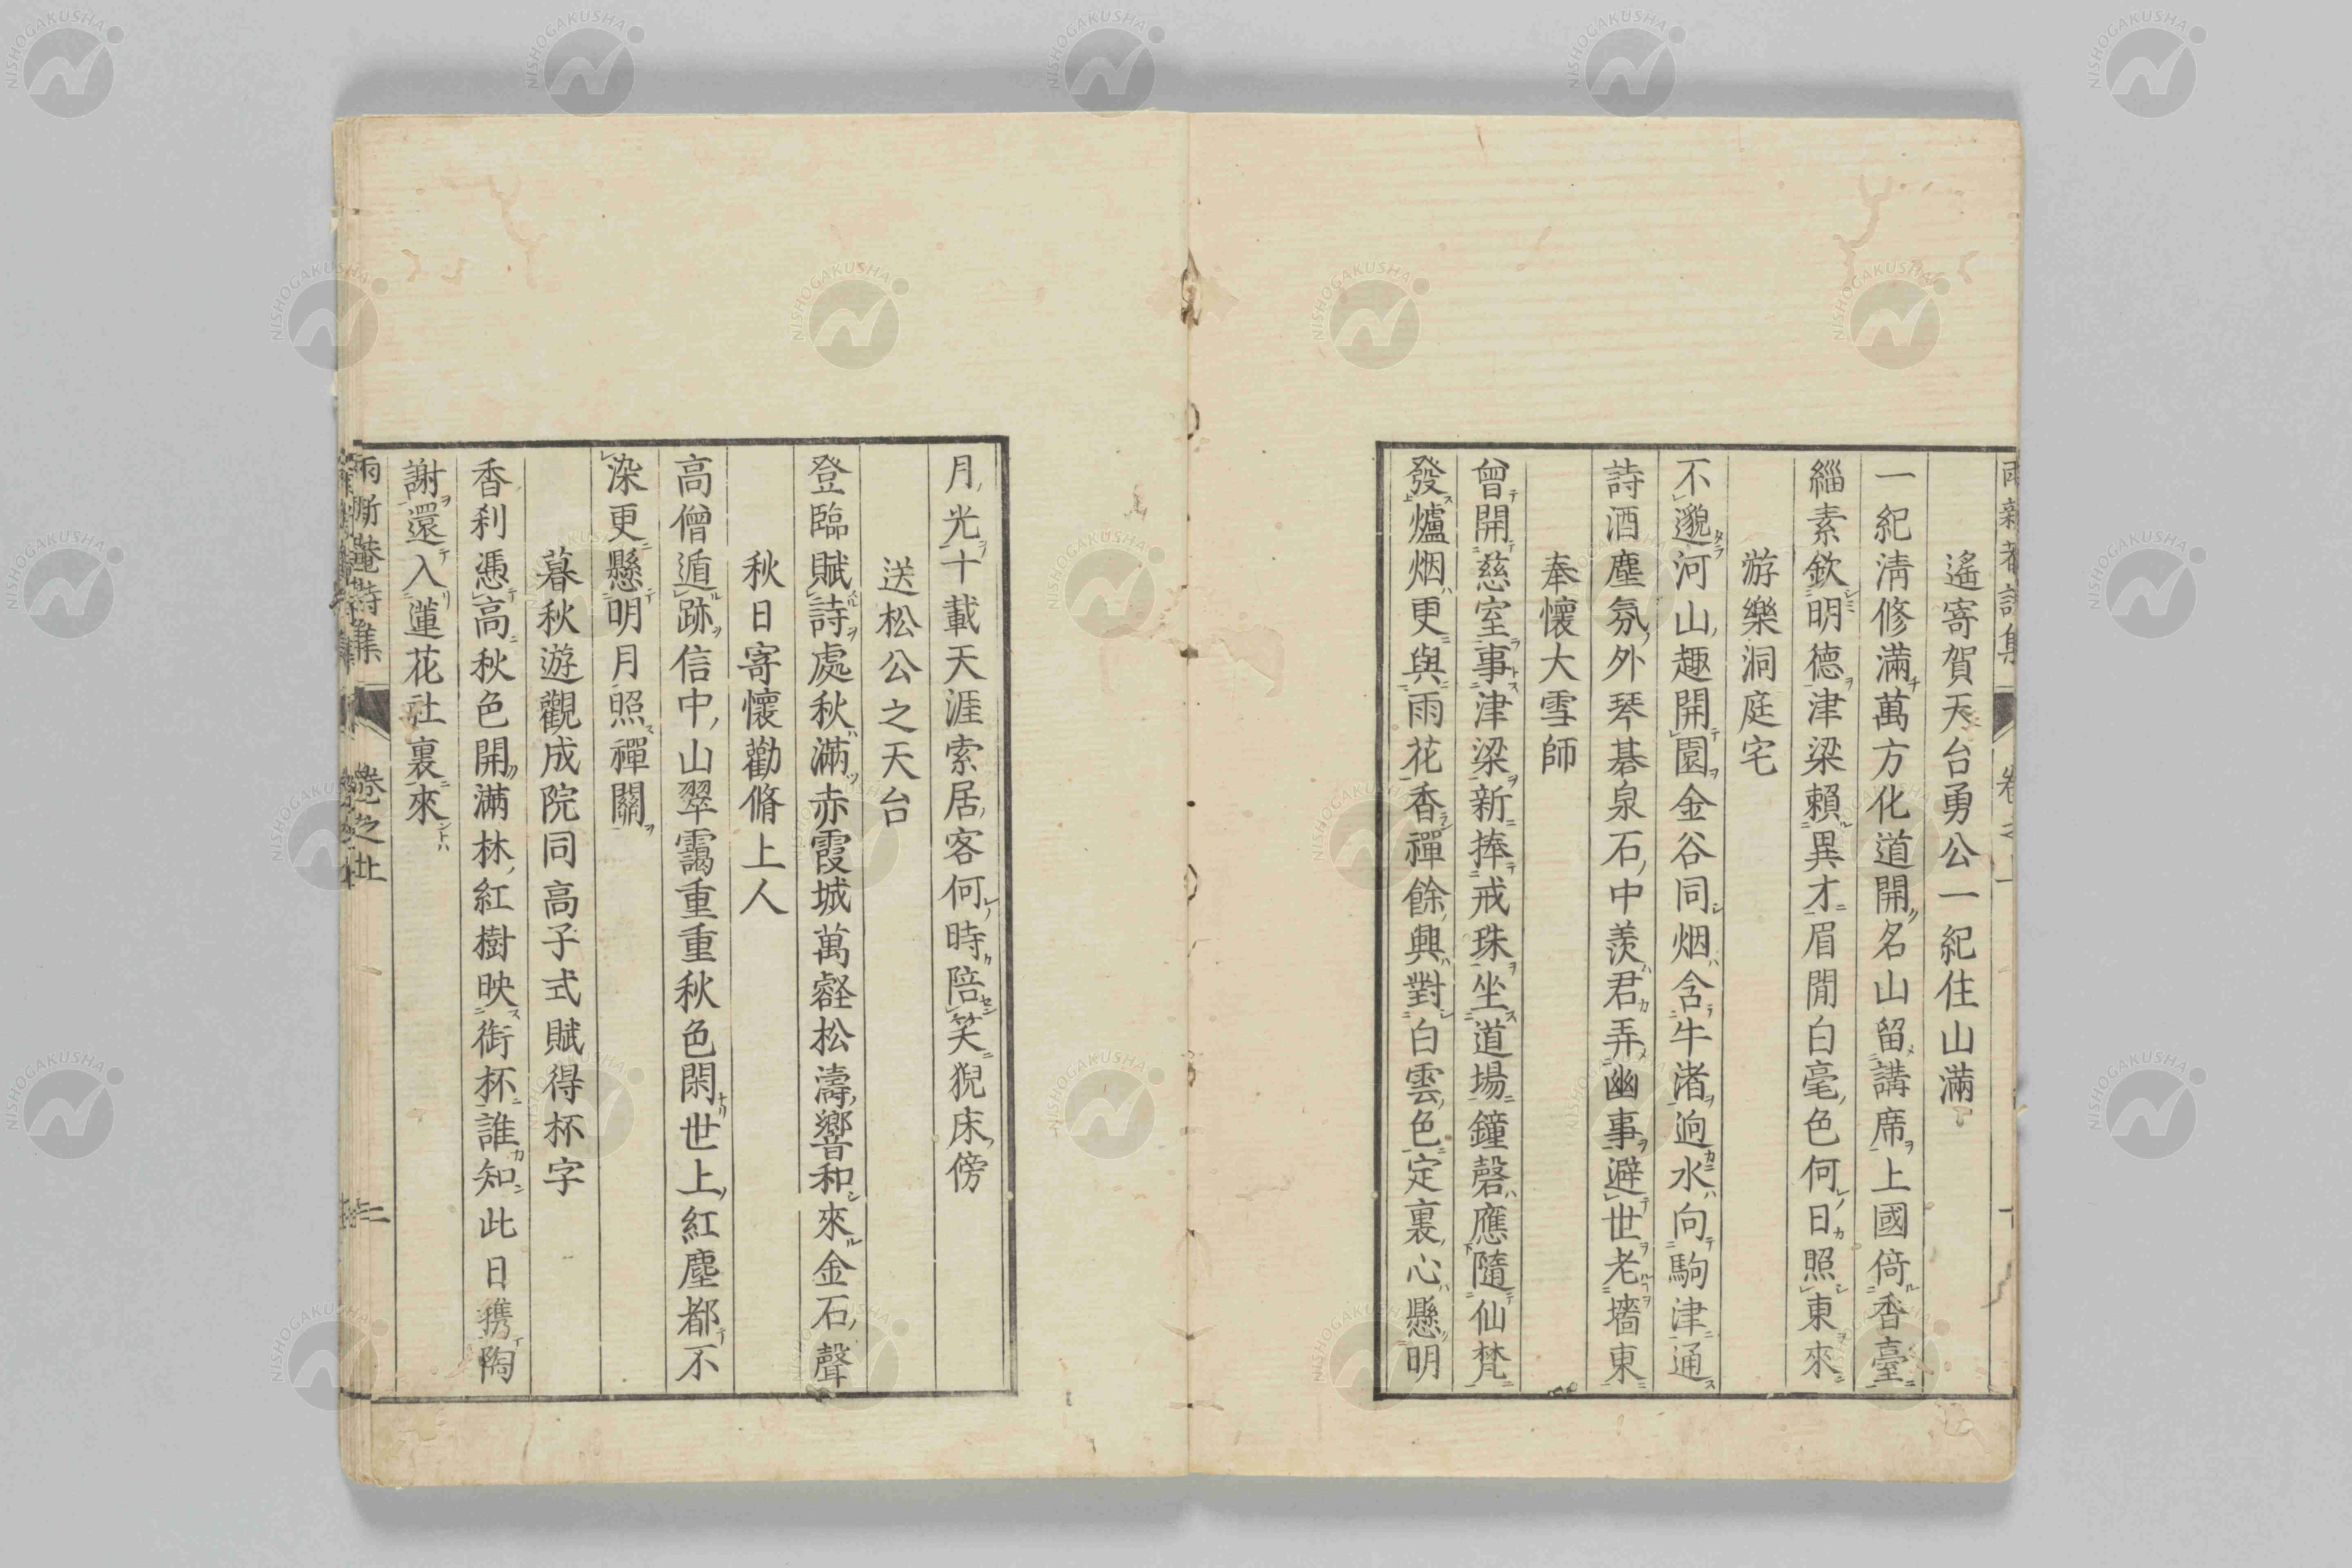 遙寄賀天台勇公一紀住山滿
一紀淸修滿萬方化道開名山留講席上國倚香臺
緇素欽明德津梁賴異才眉間白毫色何日照東來
游樂洞庭宅
不邈河山趣開園金谷同烟含牛渚迥水向駒津通
詩酒塵氛外琴碁泉石中羨君弄幽事避世老墻東
奉懷大雪師
曾開慈室事津梁新捧戒珠坐道場鐘磬應隨仙梵
發爐烟更與雨花香禪餘興對白雲色定裏心懸明
月光十載天涯索居客何時陪笑猊床傍
送松公之天台
登臨賦詩處秋滿赤霞城萬壑松濤響和來金石聲
秋日寄懷勸脩上人
高僧遁跡信中山翠靄重重秋色閑世上紅塵都不
染更懸明月照禪關
暮秋遊觀成院同高子式賦得杯字
香刹憑高秋色開滿林紅樹映銜杯誰知此日攜陶
謝還入蓮花社裏來
NISHOGAKUSHA